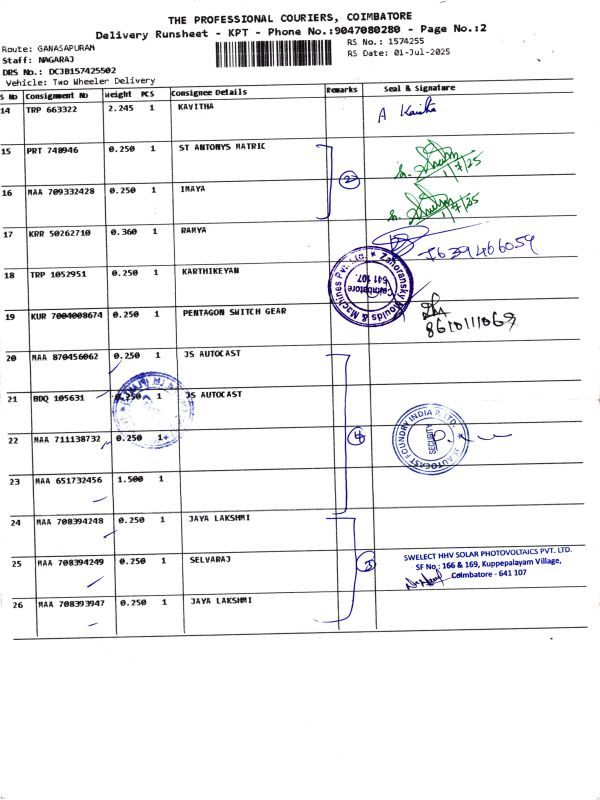 THE PROFESSIONAL COURIERS, COIMBATORE
Delivery Runsheet - KPT - Phone No.:9047080280 - Page No.:2
Route: GANASAPURAM
RS No.: 1574255
Staff: NAGARAJ
RS Date: 01-Jul-2025
DRS No.: DCJB157425502
Vehicle: Two Wheeler Delivery
S No Consignment No Weight PCS Consignee Details Remarks Seal & Signature
14 TRP 663322 2.245 1 KAVITHA
A Kavitha
15 PRT 748946 0.250 1 ST ANTONYS MATRIC
1/7/25
16 MAA 709332428 0.250 1 IMAYA
2
1/7/25
17 KRR 50262710 0.360 1 RAMYA
18 TRP 1052951 0.250 1 KARTHIKEYAN
Zahoransky Moulds & Machines Pvt. Ltd. ★
Coimbatore
641 107.
19 KUR 7004008674 0.250 1 PENTAGON SWITCH GEAR
20 MAA 870456062 0.250 1 JS AUTOCAST
21 BDQ 105631 0.250 1 JS AUTOCAST
22 MAA 711138732 0.250 1
4
JS AUTOCAST FOUNDRY INDIA P. LTD.
SECURITY
23 MAA 651732456 1.500 1
24 MAA 708394248 0.250 1 JAYA LAKSHMI
25 MAA 708394249 0.250 1 SELVARAJ
3
SWELECT HHV SOLAR PHOTOVOLTAICS PVT. LTD.
SF No : 166 & 169, Kuppepalayam Village,
Coimbatore - 641 107
26 MAA 708393947 0.250 1 JAYA LAKSHMI